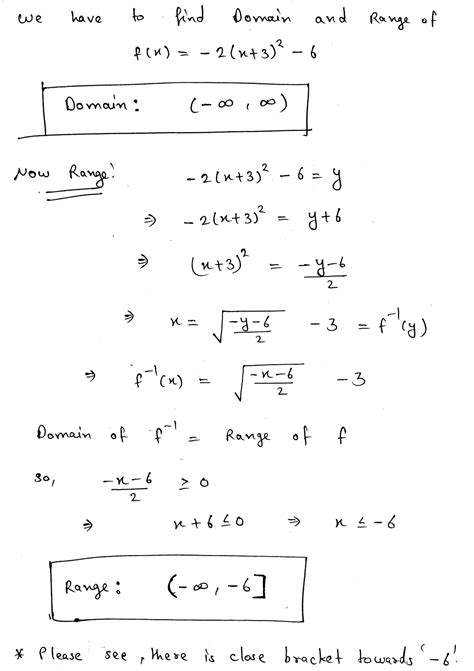 we have to find Domain and Range of
f(x) = -2(x+3)² - 6
Domain: (-∞, ∞)
Now Range:
-2(x+3)² - 6 = y
⇒ -2(x+3)² = y+6
⇒ (x+3)² = (-y-6)/2
⇒ x = √((-y-6)/2) - 3 = f⁻¹(y)
⇒ f⁻¹(x) = √((-x-6)/2) - 3
Domain of f⁻¹ = Range of f
so, (-x-6)/2 ≥ 0
⇒ x+6 ≤ 0 ⇒ x ≤ -6
Range: (-∞, -6]
* Please see, there is close bracket towards '-6'.